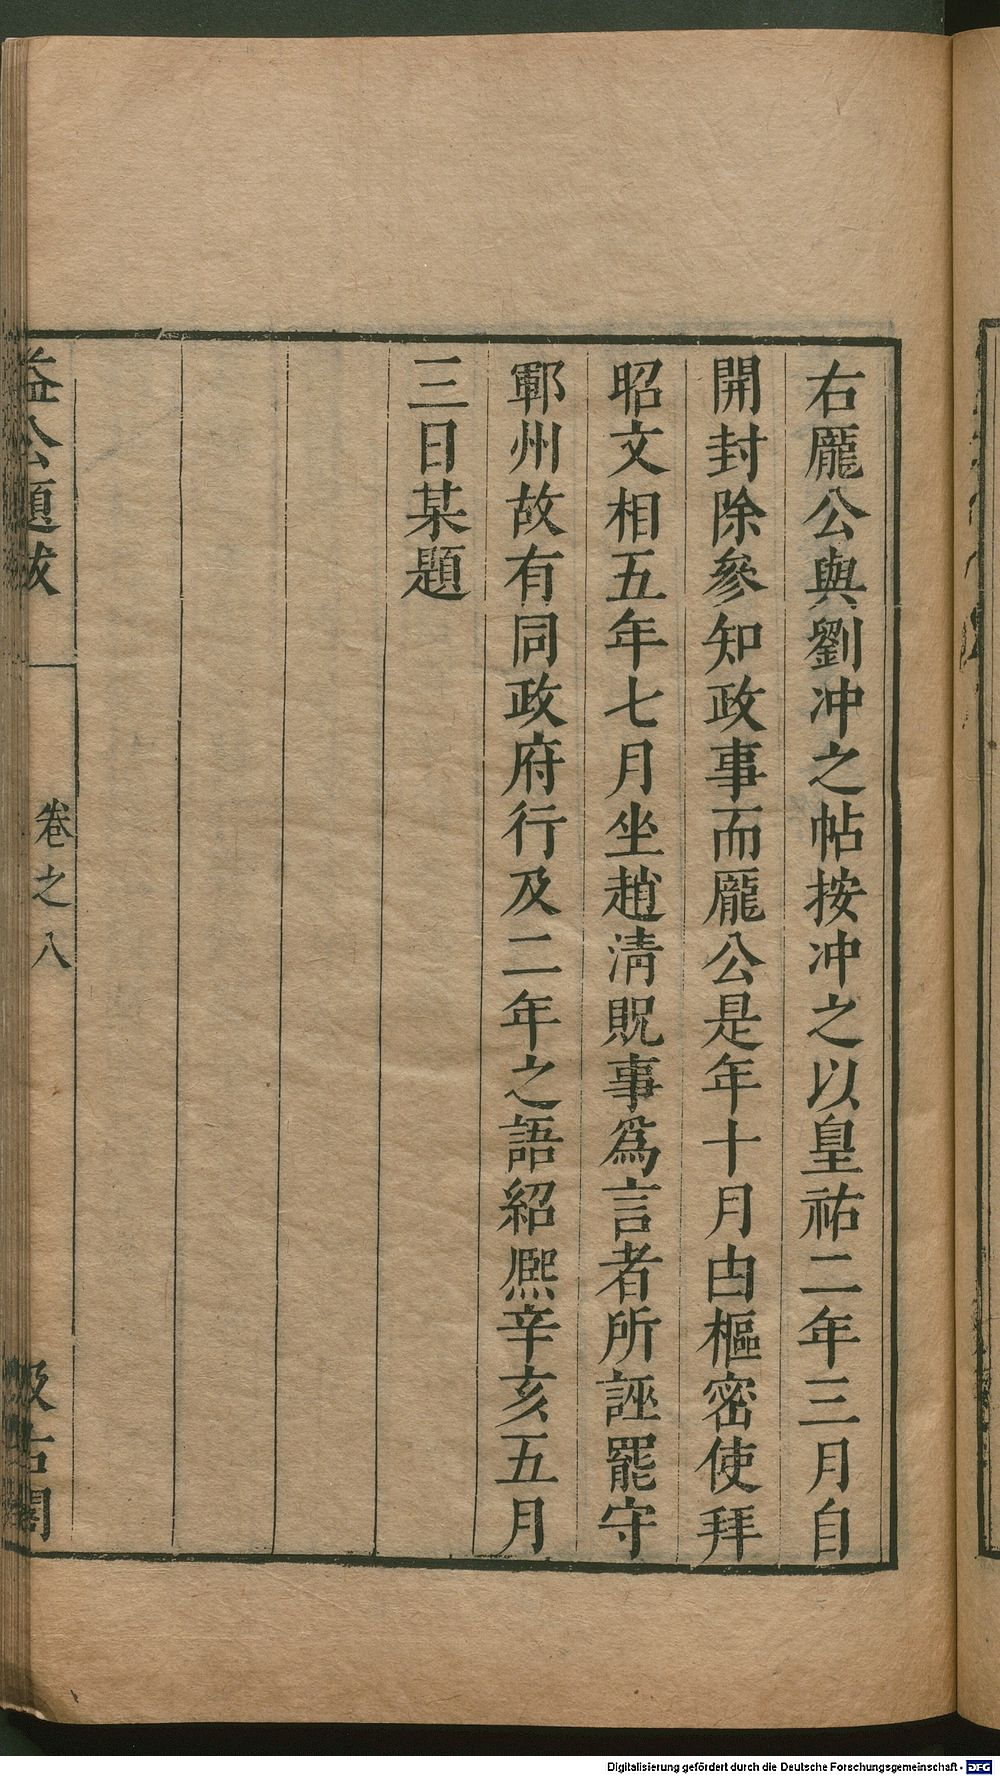 右龎公與劉冲之帖按冲之以皇祐二年三月自
開封除參知政事而龎公是年十月由樞密使拜
昭文相五年七月坐趙淸貺事爲言者所誣罷守
鄆州故有同政府行及二年之語紹熈辛亥五月
三日某題
益公題跋
卷之八
汲古閣
Digitalisierung gefördert durch die Deutsche Forschungsgemeinschaft - DFG